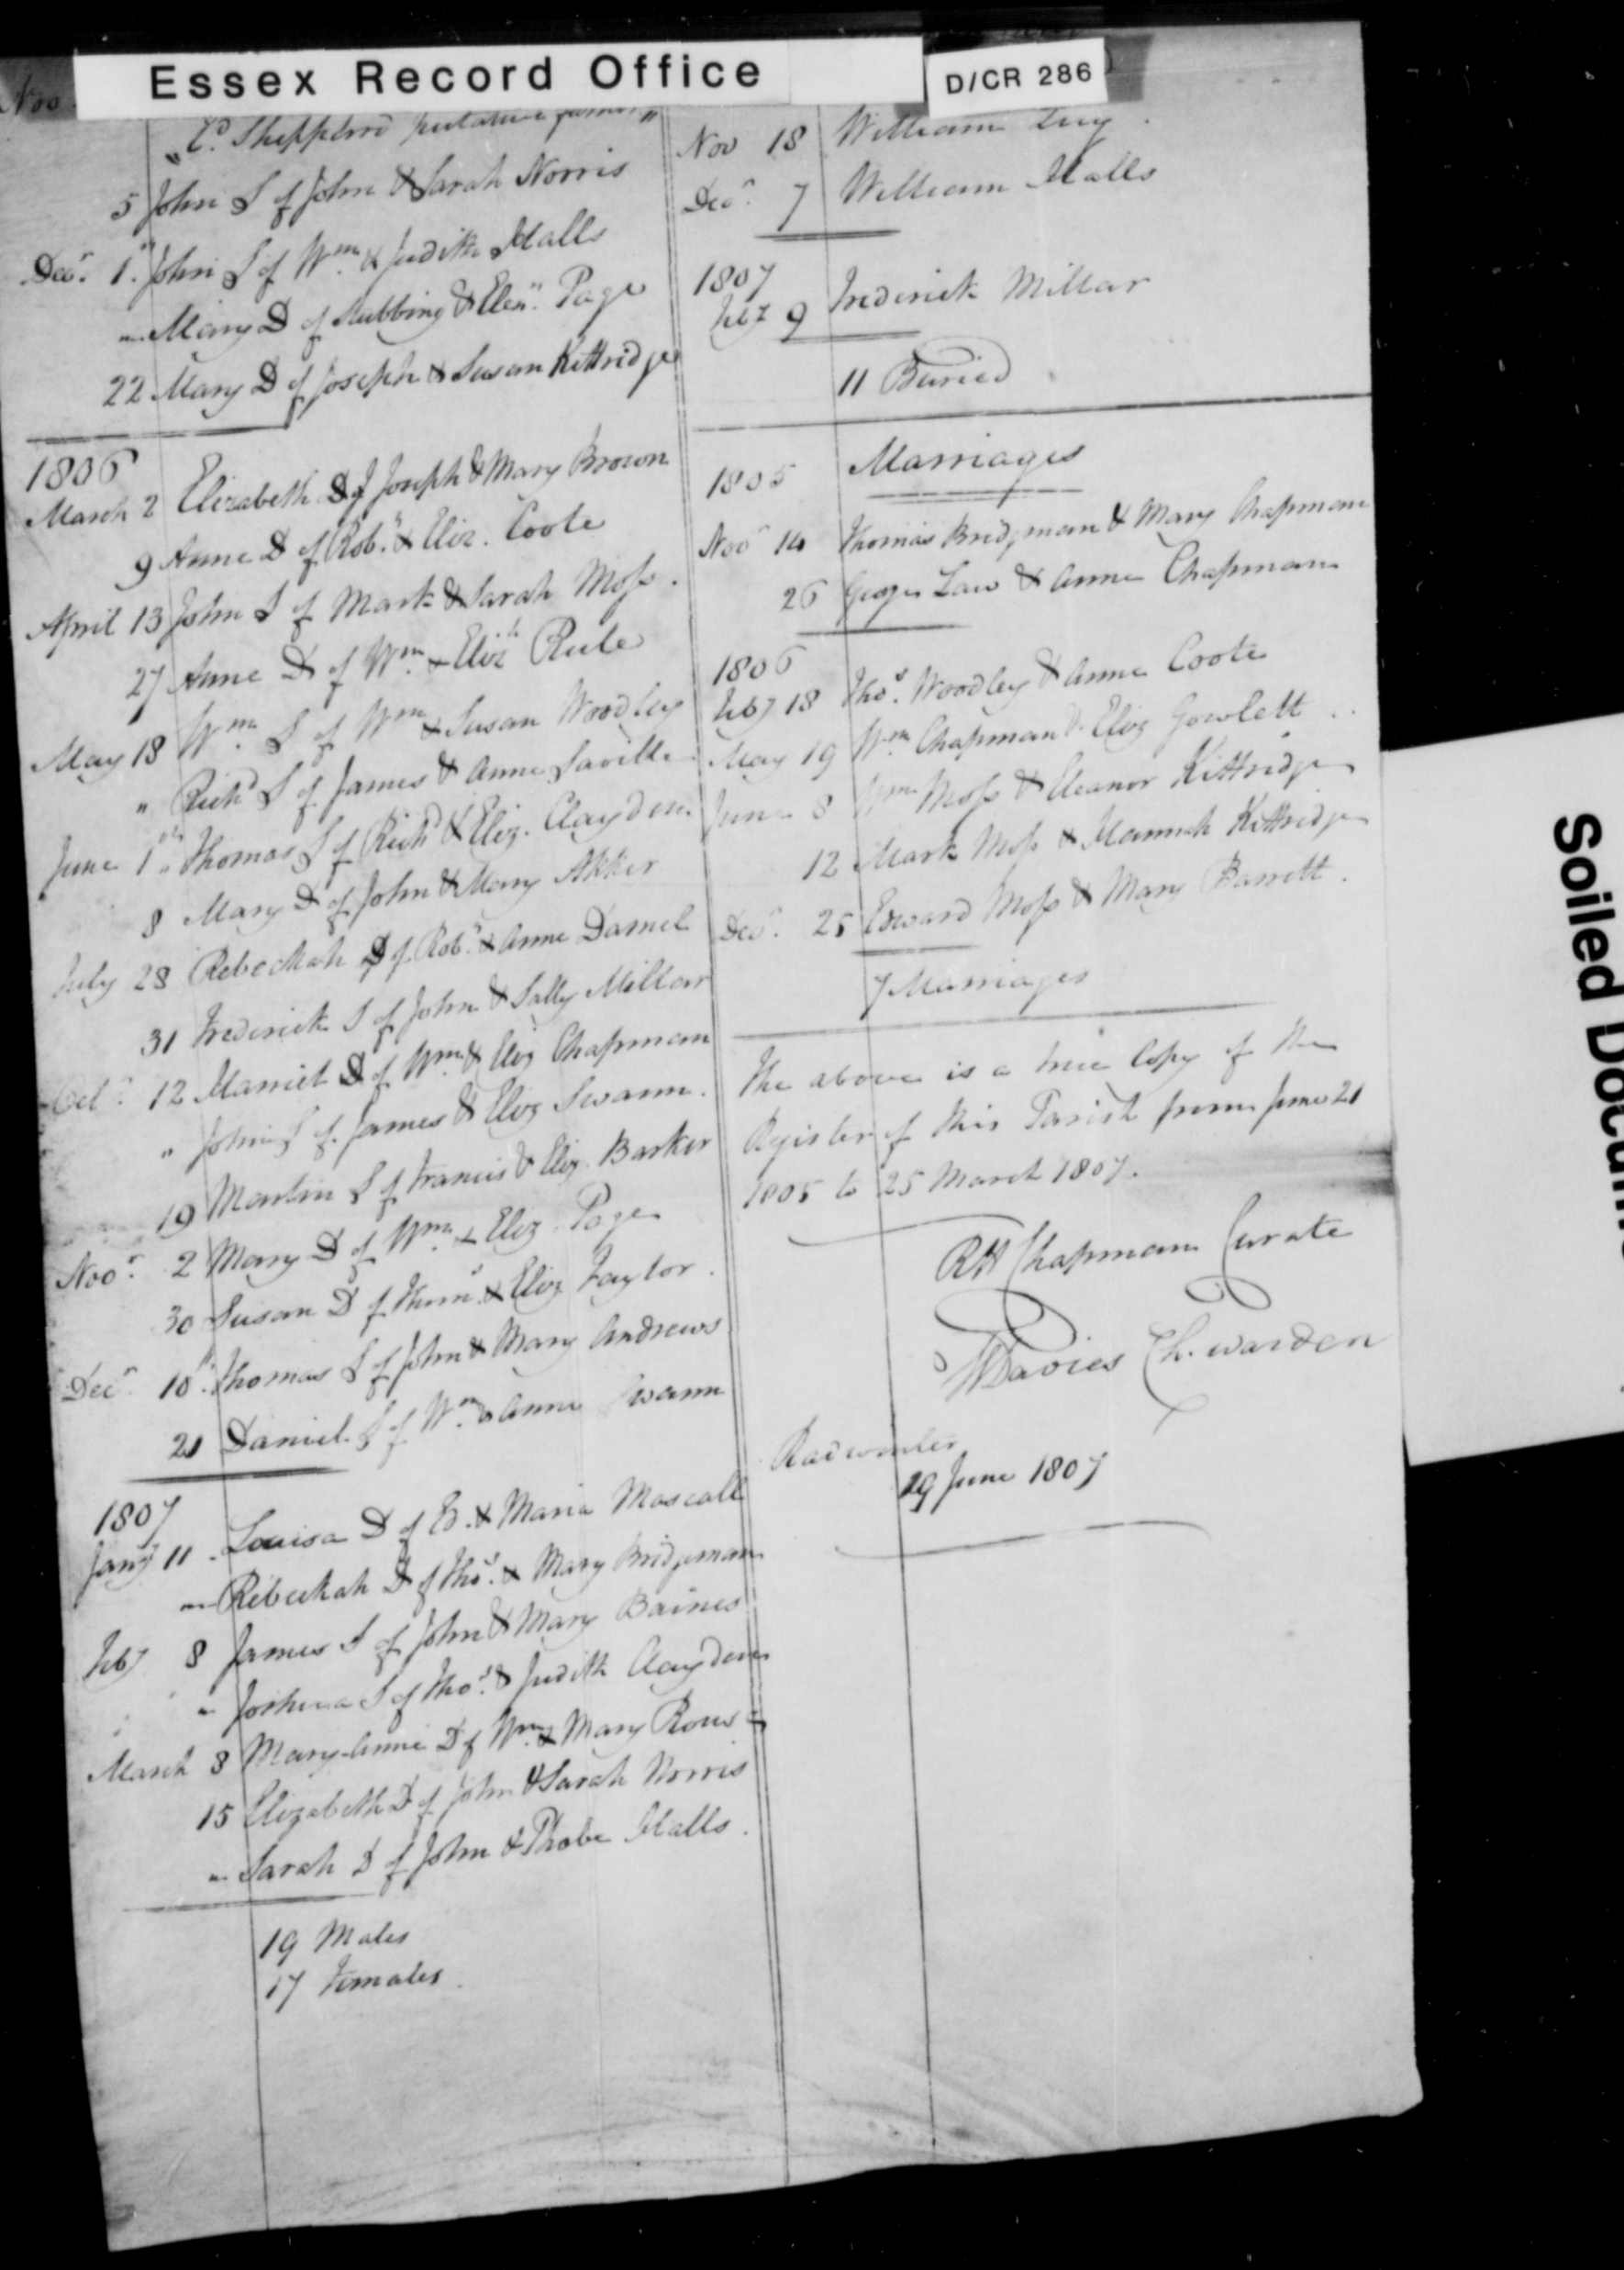 Essex Record Office
D/CR 286
Nov
"C. Shepherd putative father"
5 John S of John & Sarah Norris
Decr. 1st. John S of Wm. & Judith Halls
" Mary D of Stubbing & Elenr. Page
22 Mary D of Joseph & Susan Kittridge
1806
March 2 Elizabeth D of Joseph & Mary Brown
9 Anne D of Robt. & Eliz. Coote
April 13 John S of Mark & Sarah Moss.
27 Anne D of Wm. & Elizth Rule
May 18 Wm. S of Wm. & Susan Woodley
" Richd S of James & Anne Saville
June 1st. Thomas S of Richd & Eliz. Clayden
8 Mary D of John & Mary Akker
July 28 Rebeckah D of Robt. & Anne Daniel
31 Frederick S of John & Sally Millar
Octr. 12 Harriet D of Wm. & Eliz Chapman
" John S of James & Eliz Swann.
19 Martin S of Francis & Eliz. Barker
Novr. 2 Mary D of Wm. & Eliz. Page
30 Susan D of Thoms. & Eliz Taylor.
Decr. 10th. Thomas S of John & Mary Andrews
21 Daniel S of Wm. & Anne Swann
1807
Jany 11 Louisa D of E. & Maria Mascall
" Rebeckah D of Thos. & Mary Bridgeman
Feby 8 James S of John & Mary Baines
" Joshua S of Thos. & Judith Clayden
March 8 Mary-Anne D of Wm. & Mary Rous=
15 Elizabeth D of John & Sarah Norris
" Sarah D of John & Phobe Halls.
19 Males
17 Females.
Nov 18 William
Decr. 7 William Halls
1807
Feby 9 Frederick Millar
11 Buried
1805 Marriages
Novr 14 Thomas Bridgman & Mary Chapman
26 George Law & Anne Chapman
1806
Feby 18 Thos. Woodley & Anne Coote
May 19 Wm. Chapman & Eliz Gowlett
June 8 Wm. Moss & Eleanor Kittridge
12 Mark Moss & Hannah Kittridge
Decr. 25 Edward Moss & Mary Barrett.
7 Marriages
The above is a true Copy of the
Register of this Parish from June 21
1805 to 25 March 1807.
RH Chapman Curate
Davies Ch. warden
Radwinter
29 June 1807
Soiled Docum